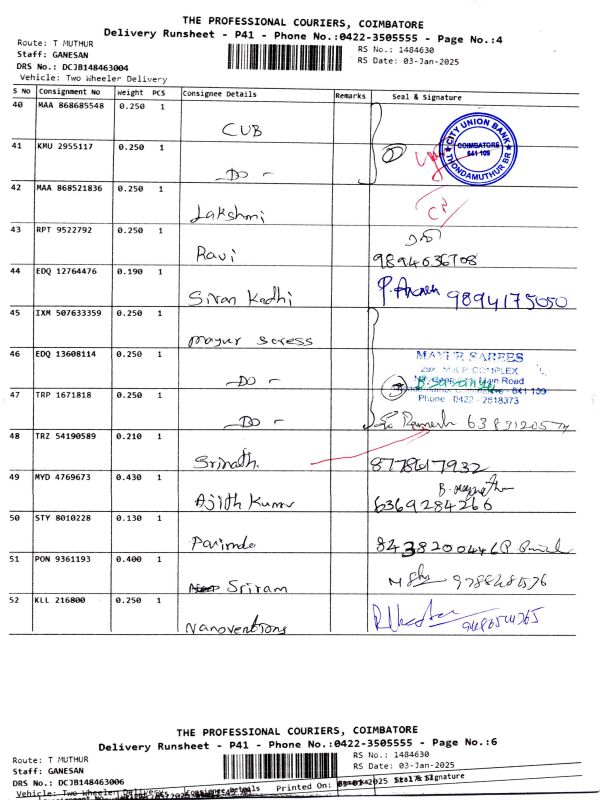 THE PROFESSIONAL COURIERS, COIMBATORE
Delivery Runsheet - P41 - Phone No.:0422-3505555 - Page No.:4
Route: T MUTHUR
Staff: GANESAN
DRS No.: DCJB148463004
Vehicle: Two Wheeler Delivery
RS No.: 1484630
RS Date: 03-Jan-2025
S No Consignment No Weight PCS Consignee Details Remarks Seal & Signature
40 MAA 868685548 0.250 1
CUB
CITY UNION BANK
COIMBATORE
641 109
THONDAMUTHUR BR
41 KMU 2955117 0.250 1
- DO -
42 MAA 868521836 0.250 1
Lakshmi
43 RPT 9522792 0.250 1
Ravi 9894636708
44 EDQ 12764476 0.190 1
Sivan Kadhi 9894175050
45 IXM 507633359 0.250 1
mayur
46 EDQ 13608114 0.250 1
- DO -
MAYUR SAREES
COMPLEX
Main Road
641 109
Phone : 0422 - 2618373
47 TRP 1671818 0.250 1
- DO -
48 TRZ 54190589 0.210 1
Srinath 8778617932
49 MYD 4769673 0.430 1
Ajith Kumar 6369284266
50 STY 8010228 0.130 1
8438200446
51 PON 9361193 0.400 1
Sriram
52 KLL 216800 0.250 1
Nanoventions
THE PROFESSIONAL COURIERS, COIMBATORE
Delivery Runsheet - P41 - Phone No.:0422-3505555 - Page No.:6
Route: T MUTHUR
Staff: GANESAN
DRS No.: DCJB148463006
Vehicle: Two Wheeler Delivery
RS No.: 1484630
RS Date: 03-Jan-2025
Printed On:
Seal & Signature